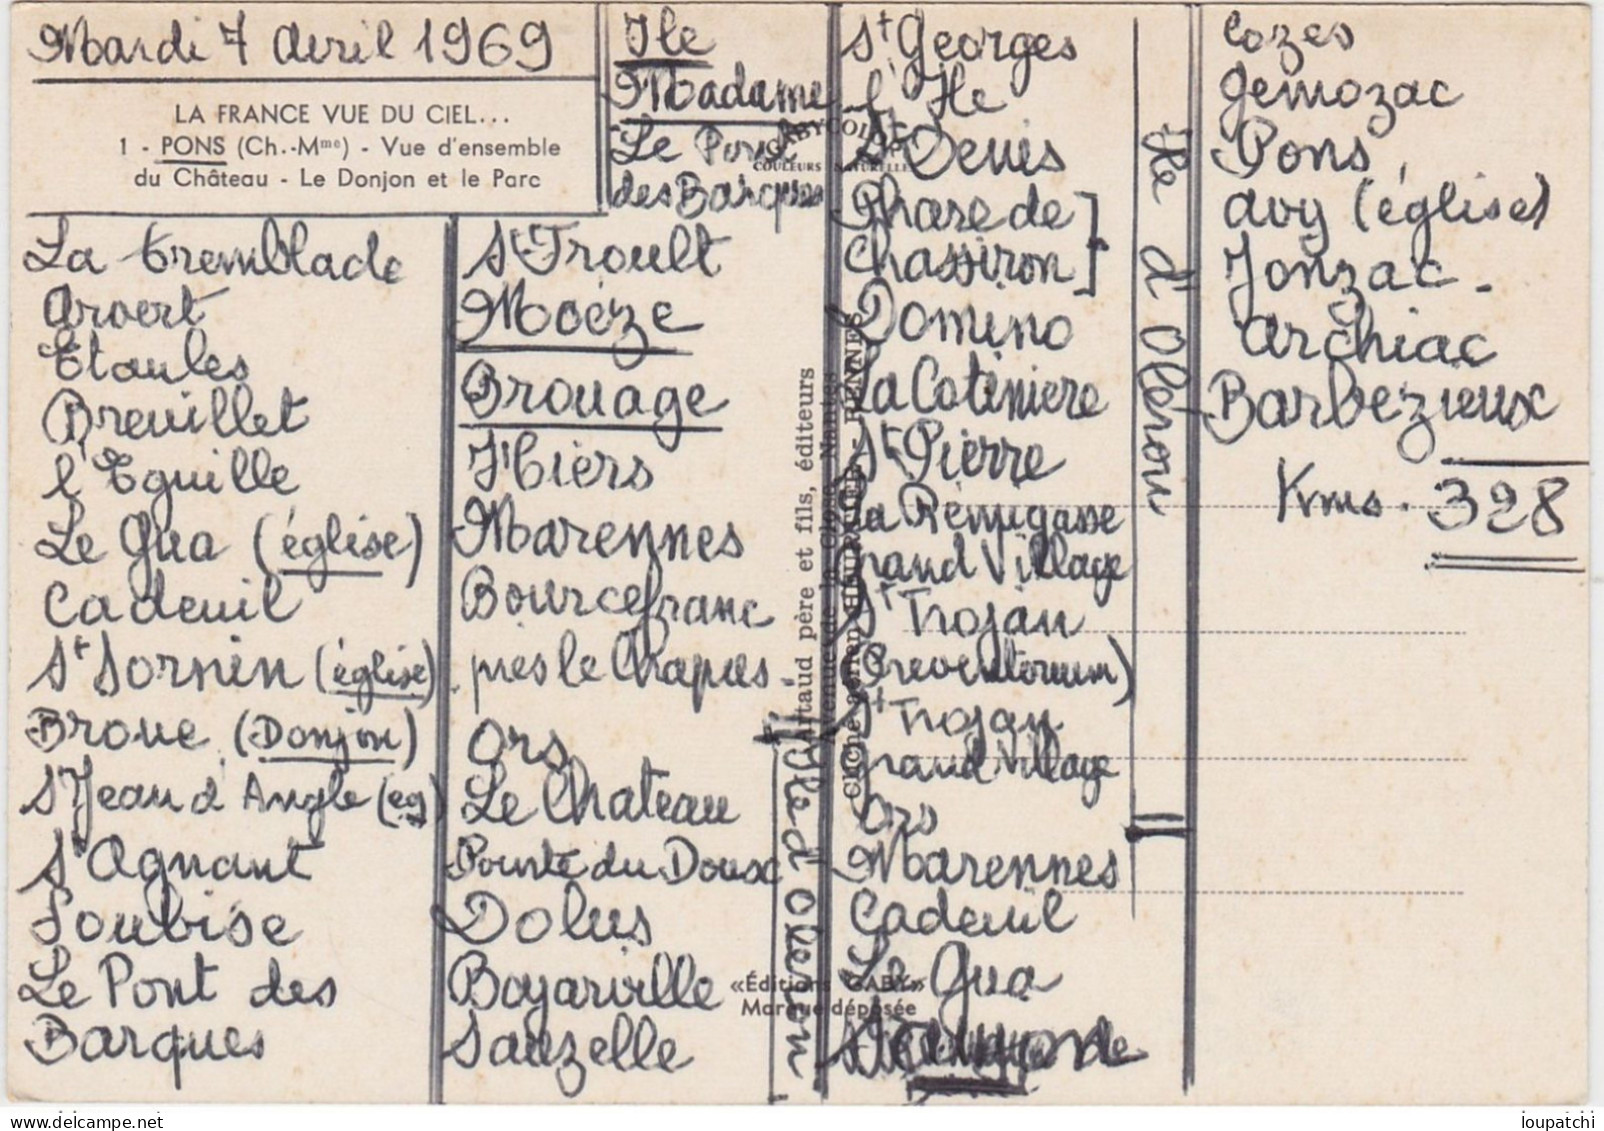 Mardi 7 avril 1969
LA FRANCE VUE DU CIEL...
1 - PONS (Ch.-Mme) - Vue d'ensemble
du Château - Le Donjon et le Parc
La Tremblade
Arvert
Etaules
Breuillet
l'Eguille
Le Gua (église)
Cadeuil
St Sornin (église)
Broue (Donjon)
St Jean d'Angle (eg)
St Agnant
Soubise
Le Pont des
Barques
Ile
Madame
Le Pont
des Barques
St Froult
Moëze
Brouage
Hiers
Marennes
Bourcefranc
près le Chapus-
Ors
Le Chateau
Pointe du Doux
Dolus
Boyarville
Sauzelle
Ile d'Oleron
GABYCOLOR
COULEURS NATURELLES
Artaud père et fils, éditeurs
Avenue de la Close - Nantes
RENNES
«Éditions GABY»
Marque déposée
St Georges
l'Ile
St Denis
Phare de]
Chassiron]
Domino
La Cotiniere
St Pierre
La Rémigeasse
Grand Village
St Trojan
(Preventorium)
St Trojan
Grand Village
Ors
Marennes
Cadeuil
Le Gua
Ile d'Oleron
Cozes
Gemozac
Pons
Avy (église)
Jonzac -
Archiac
Barbezieux
Kms. 328
loupatchi